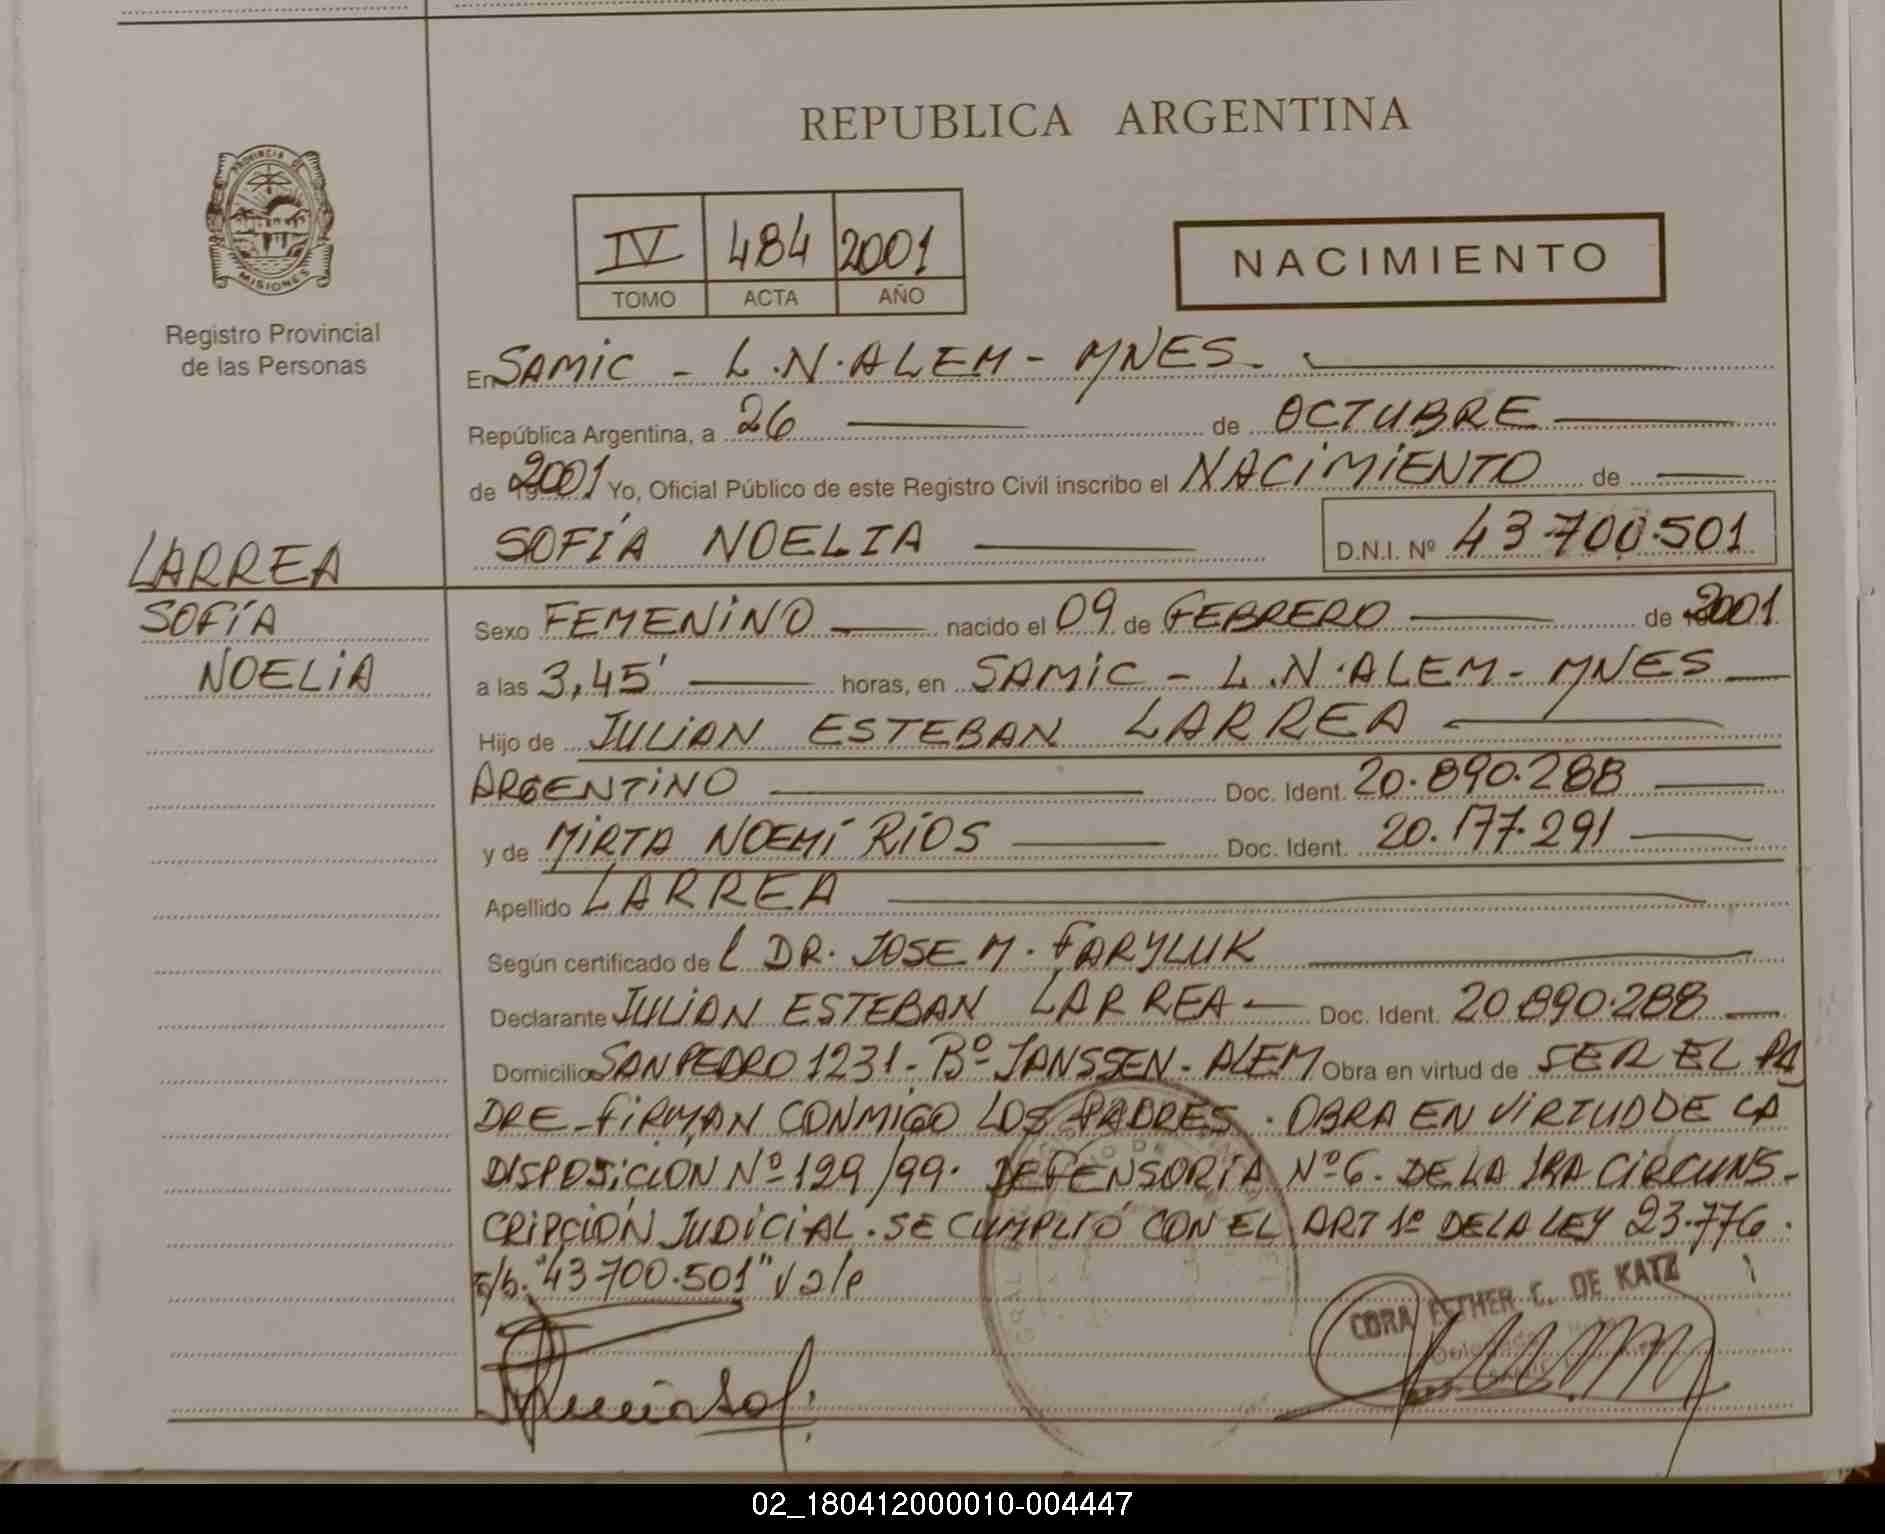 REPUBLICA ARGENTINA
PROVINCIA DE
MISIONES
Registro Provincial
de las Personas
IV 484 2001
TOMO ACTA AÑO
NACIMIENTO
En SAMIC - L.N.ALEM - MNES.
República Argentina, a 26 de OCTUBRE
de 2001 Yo, Oficial Público de este Registro Civil inscribo el NACIMIENTO de
SOFÍA NOELIA D.N.I. Nº 43.700.501
LARREA
SOFÍA
NOELIA
Sexo FEMENINO nacido el 09 de FEBRERO de 2001
a las 3,45' horas, en SAMIC - L.N.ALEM - MNES
Hijo de JULIAN ESTEBAN LARREA
ARGENTINO Doc. Ident. 20.890.288
y de MIRTA NOEMÍ RÍOS Doc. Ident. 20.177.291
Apellido LARREA
Según certificado de L DR. JOSE M. FARYLUK
Declarante JULIAN ESTEBAN LARREA Doc. Ident. 20.890.288
Domicilio SAN PEDRO 1231 - Bº JANSSEN - ALEM Obra en virtud de SER EL PA
DRE - FIRMAN CONMIGO LOS PADRES. OBRA EN VIRTUD DE LA
DISPOSICIÓN Nº 129/99. DEFENSORÍA Nº 6. DE LA 1RA CIRCUNS-
CRIPCIÓN JUDICIAL. SE CUMPLIÓ CON EL ART 1º DE LA LEY 23.776.
"43.700.501"
CORA ESTHER C. DE KATZ
02_180412000010-004447